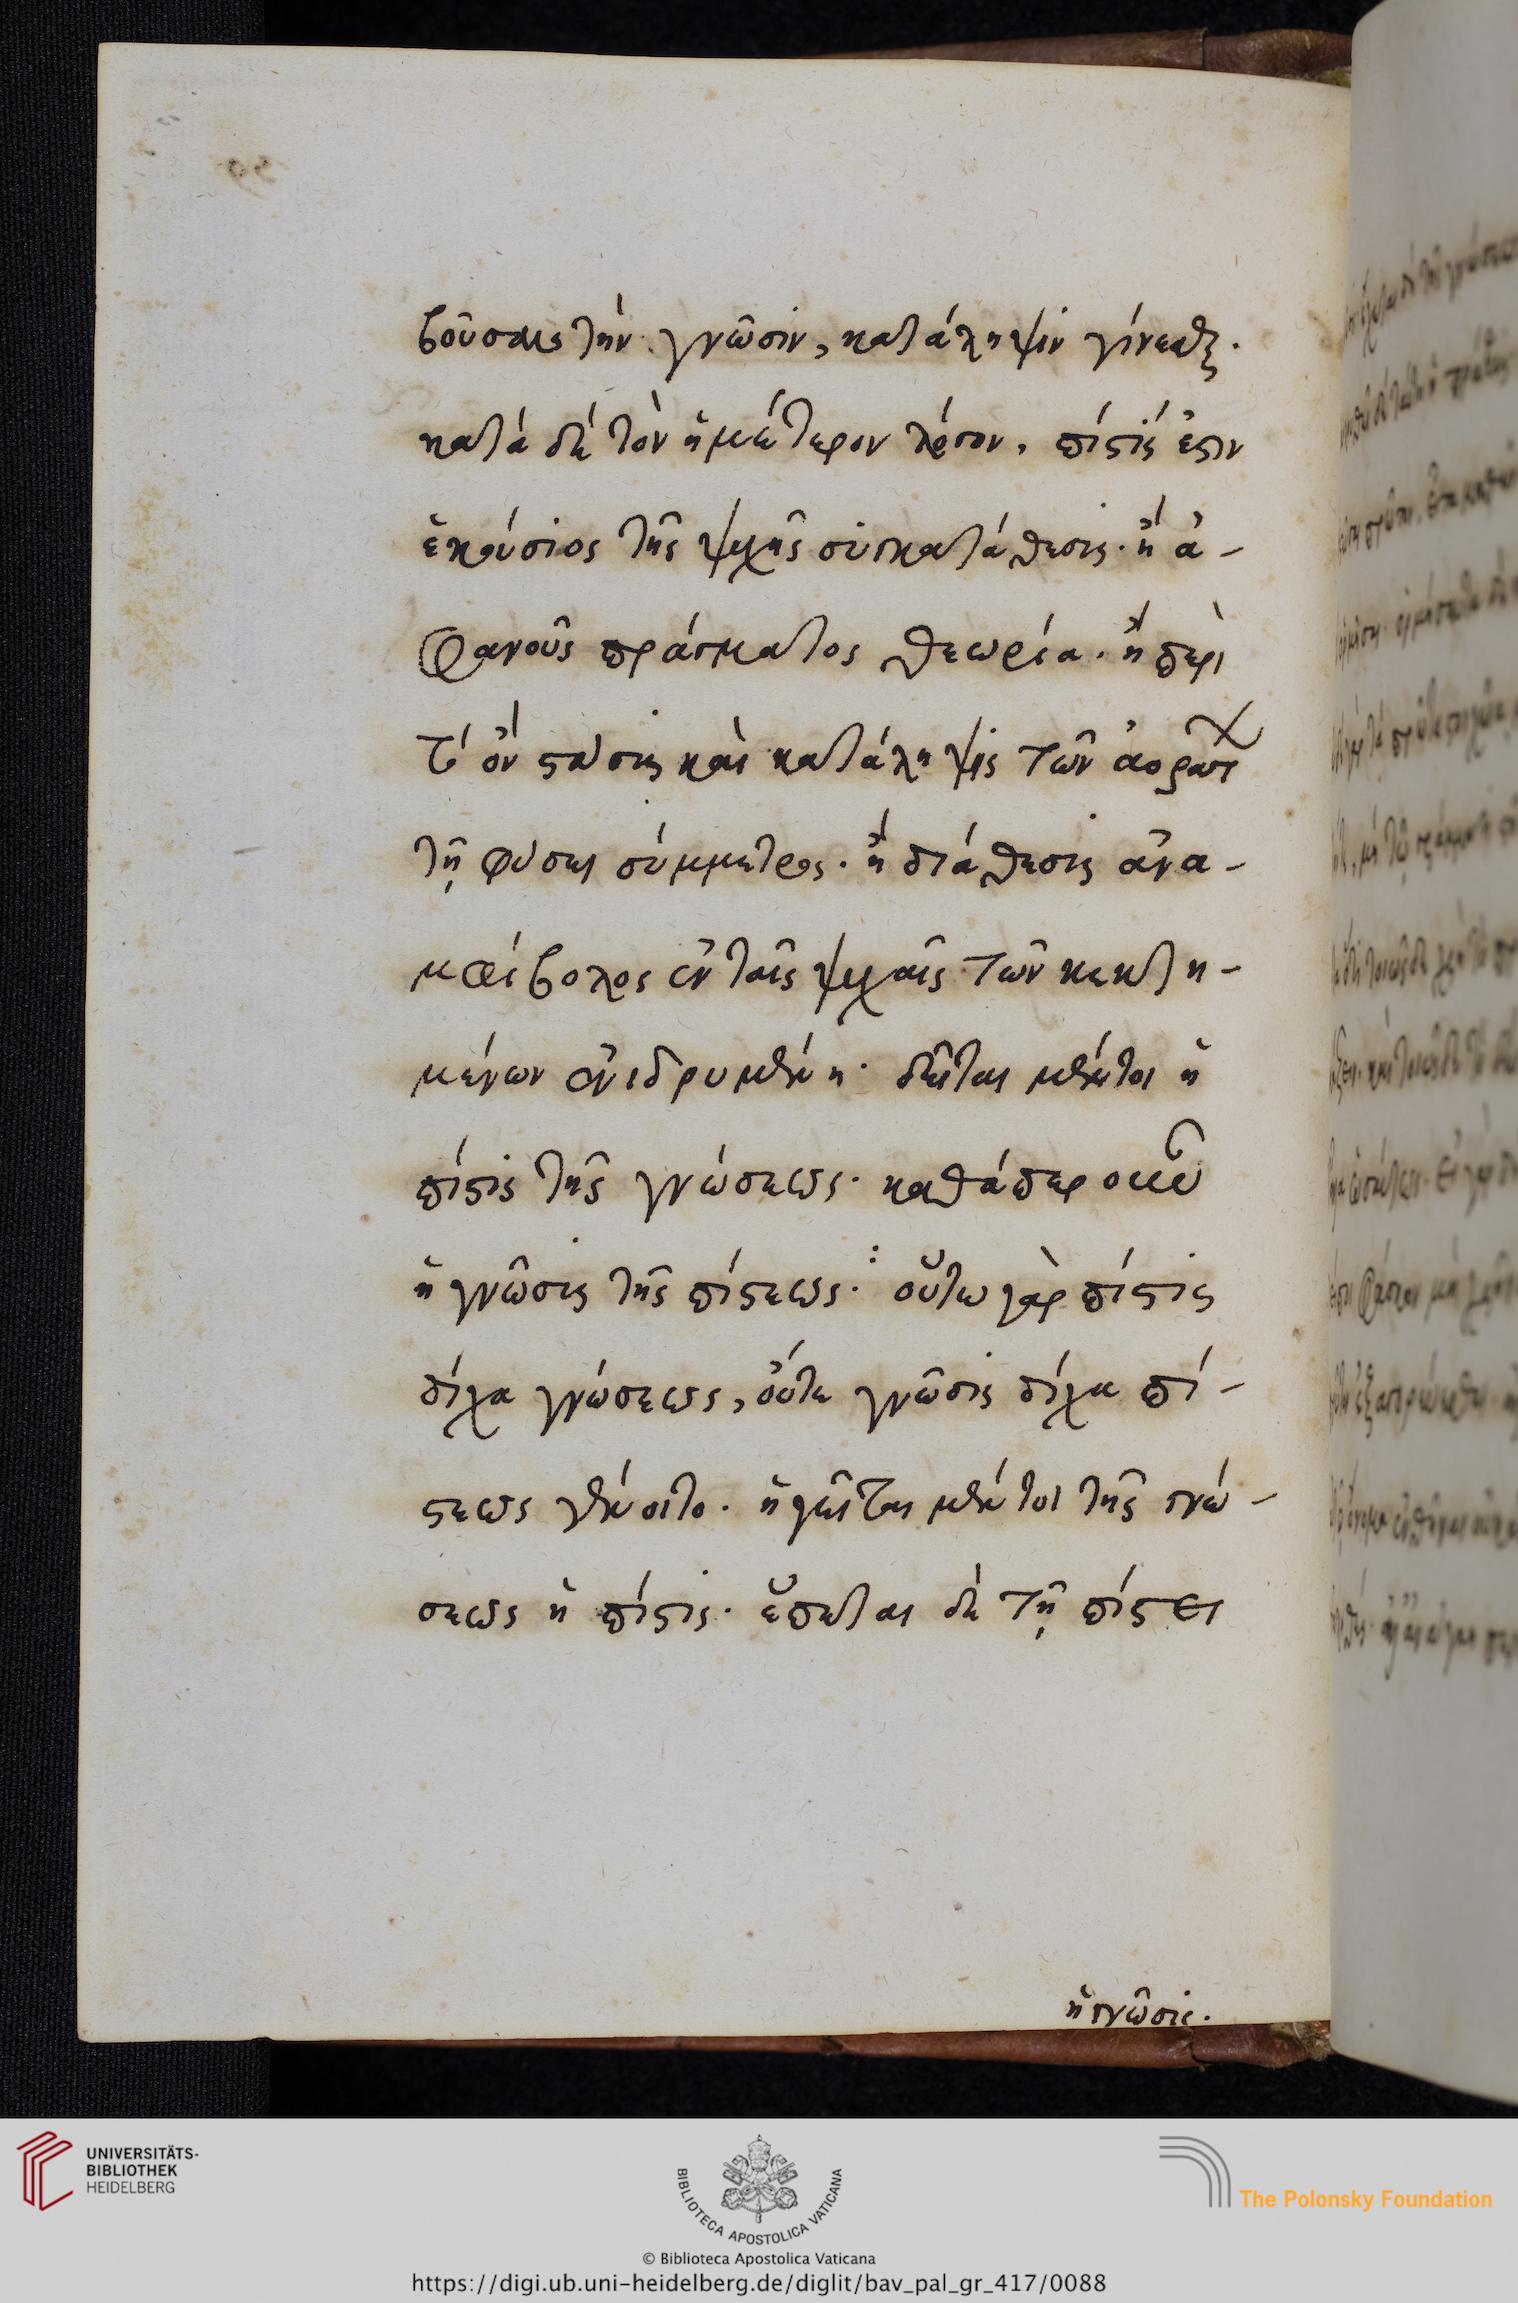 βοῦσαις τὴν γνῶσιν, κατάληψιν γίνεσθαι.
κατὰ δὲ τὸν ἡμέτερον λόγον, πίστίς ἐστιν
ἑκούσιος τῆς ψυχῆς συγκατάθεσις. ἢ ἀ-
φανοῦς πράγματος θεωρία. ἢ περὶ
τὸ ὂν στάσις καὶ κατάληψις τῶν ἀοράτων
τῇ φύσει σύμμετρος. ἢ διάθεσις ἀνα-
μφίβολος ἐν ταῖς ψυχαῖς τῶν κεκτη-
μένων ἐνιδρυμένη. δεῖται μέντοι ἡ
πίστις τῆς γνώσεως. καθάπερ
ἡ γνῶσις τῆς πίστεως. οὔτω γὰρ πίστις
δίχα γνώσεως, οὔτε γνῶσις δίχα πί-
στεως γένοιτο. ἡγεῖται μέντοι τῆς γνώ-
σεως ἡ πίστις. ἕπεται δὲ τῇ πίστει
ἡ γνῶσις.
UNIVERSITÄTS-
BIBLIOTHEK
HEIDELBERG
BIBLIOTECA APOSTOLICA VATICANA
The Polonsky Foundation
© Biblioteca Apostolica Vaticana
https://digi.ub.uni-heidelberg.de/diglit/bav_pal_gr_417/0088